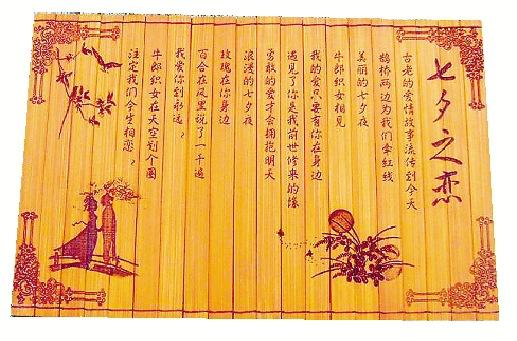 七夕之恋
古老的爱情故事流传到今天
鹊桥两边为我们牵红线
美丽的七夕夜
牛郎织女相见
我的爱只要有你在身边
遇见了你是我前世修来的缘
勇敢的爱才会拥抱明天
浪漫的七夕夜
玫瑰在你身边
百合在风里说了一千遍
我爱你到永远
牛郎织女在天空划个圈
注定我们今生相恋